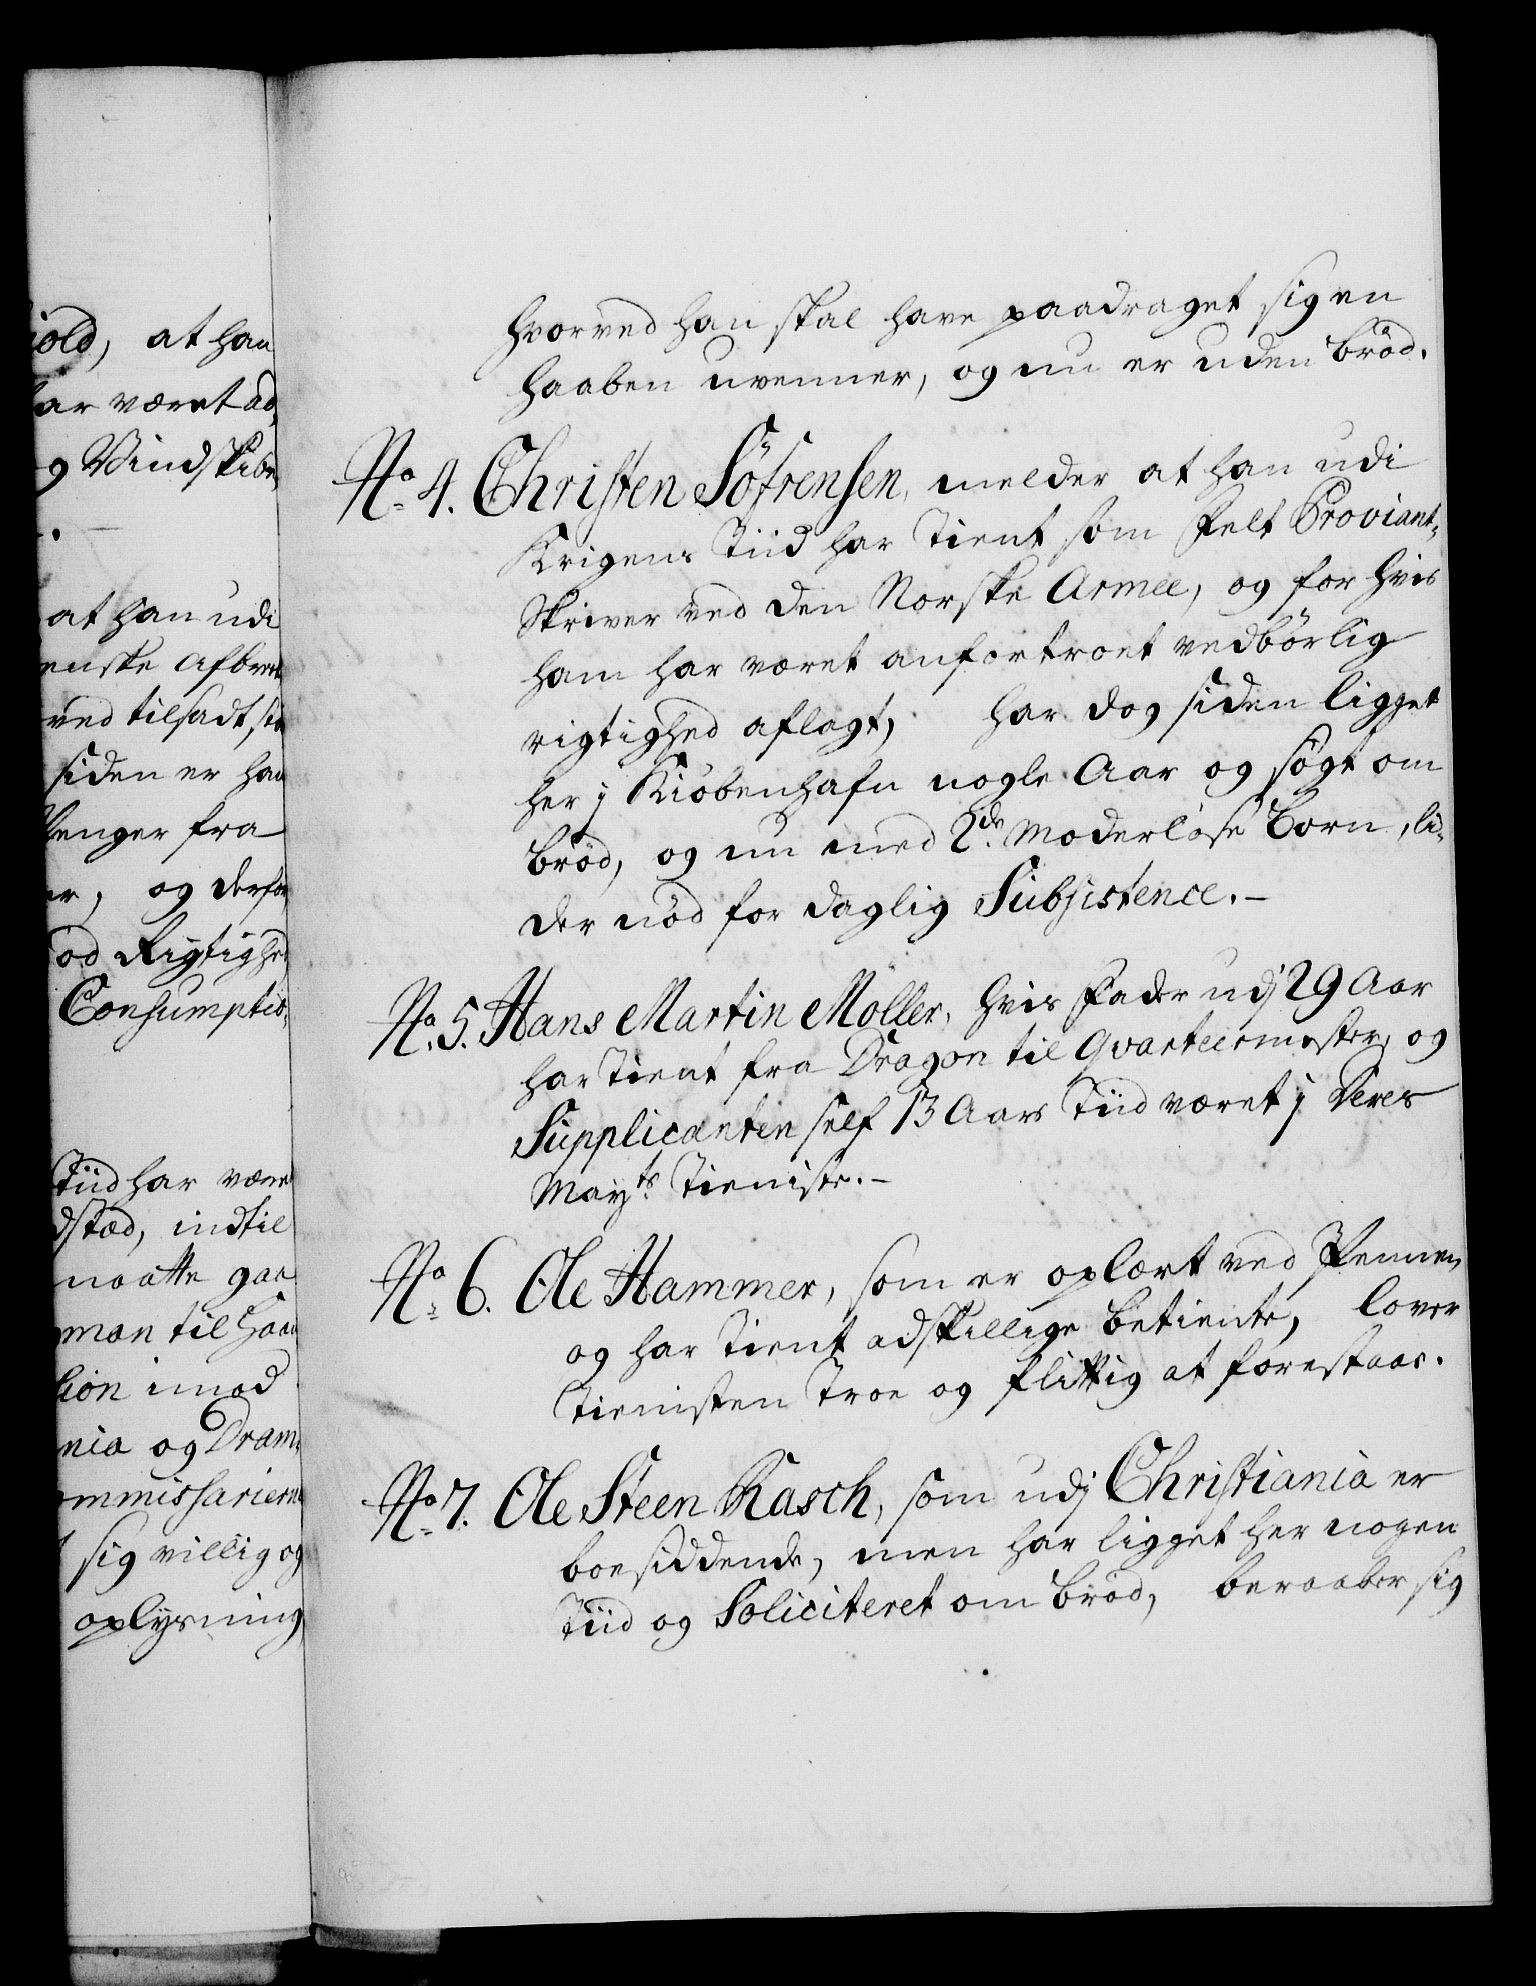 iold, at han
har været ad,
g Vindskibe,
at han udi
enske Afbre
ved tilsadt,
siden er han
Penger fra
er, og derfor
od Rigtighed
Consumptio,
Tiid har være
dstæd, indtil
maatte gaa
man til Haan
tion imod
nia og Dram,
ommissarierne
sig villig og
oplysning
hvorved han skal have paadraget sig en
haaben uvenner, og nu er uden brød.
No 4. Christen Söfrensen, melder at han udi
Krigens Tiid har Tient som Felt Proviant-
Skriver ved den Norske Armee, og for hvis
ham har været anfortroet vedbörlig
rigtighed aflagt, har dog siden ligget
her j Kiöbenhafn nogle Aar og sögt om
bröd, og nu med 2de Moderløse Born, li-
der nöd for daglig Subsistence.-
No. 5. Hans Martin Möller, hvis Fader udj 29 Aar
har Tient fra Dragon til Qvarteermester, og
Supplicanten self 13 Aars Tiid været j Deres
Mayts Tieniste.-
No 6. Ole Hammer, som er oplært ved Pennen,
og har Tient adskillige betiente, lover
Tienisten Troe og flittig at forestaae.
No 7. Ole Steen Rasch, som udj Christiania er
boesiddende, men har ligget her nogen
Tiid og Soliciteret om bröd, beraaber sig